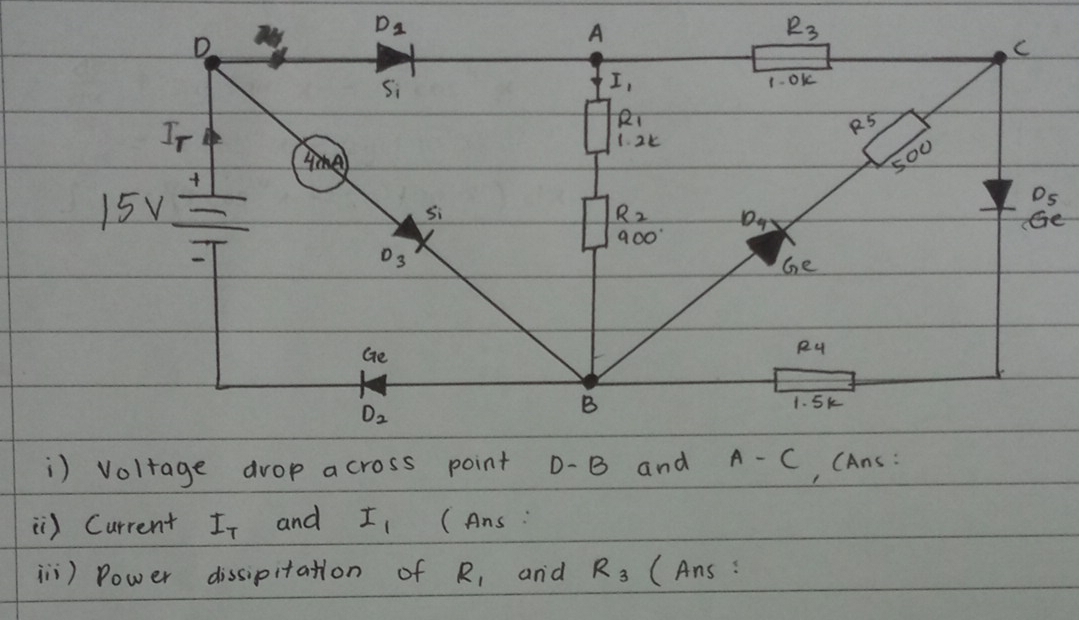 D
D1
Si
A
R3
1.0K
C
I1
IT
4mA
R1
1.2K
R5
500
15V
+
-
Si
D3
R2
900
D4
Ge
D5
Ge
Ge
D2
B
R4
1.5K
i) Voltage drop across point D-B and A-C, (Ans:
ii) Current IT and I1 (Ans:
iii) Power dissipitation of R1 and R3 (Ans: